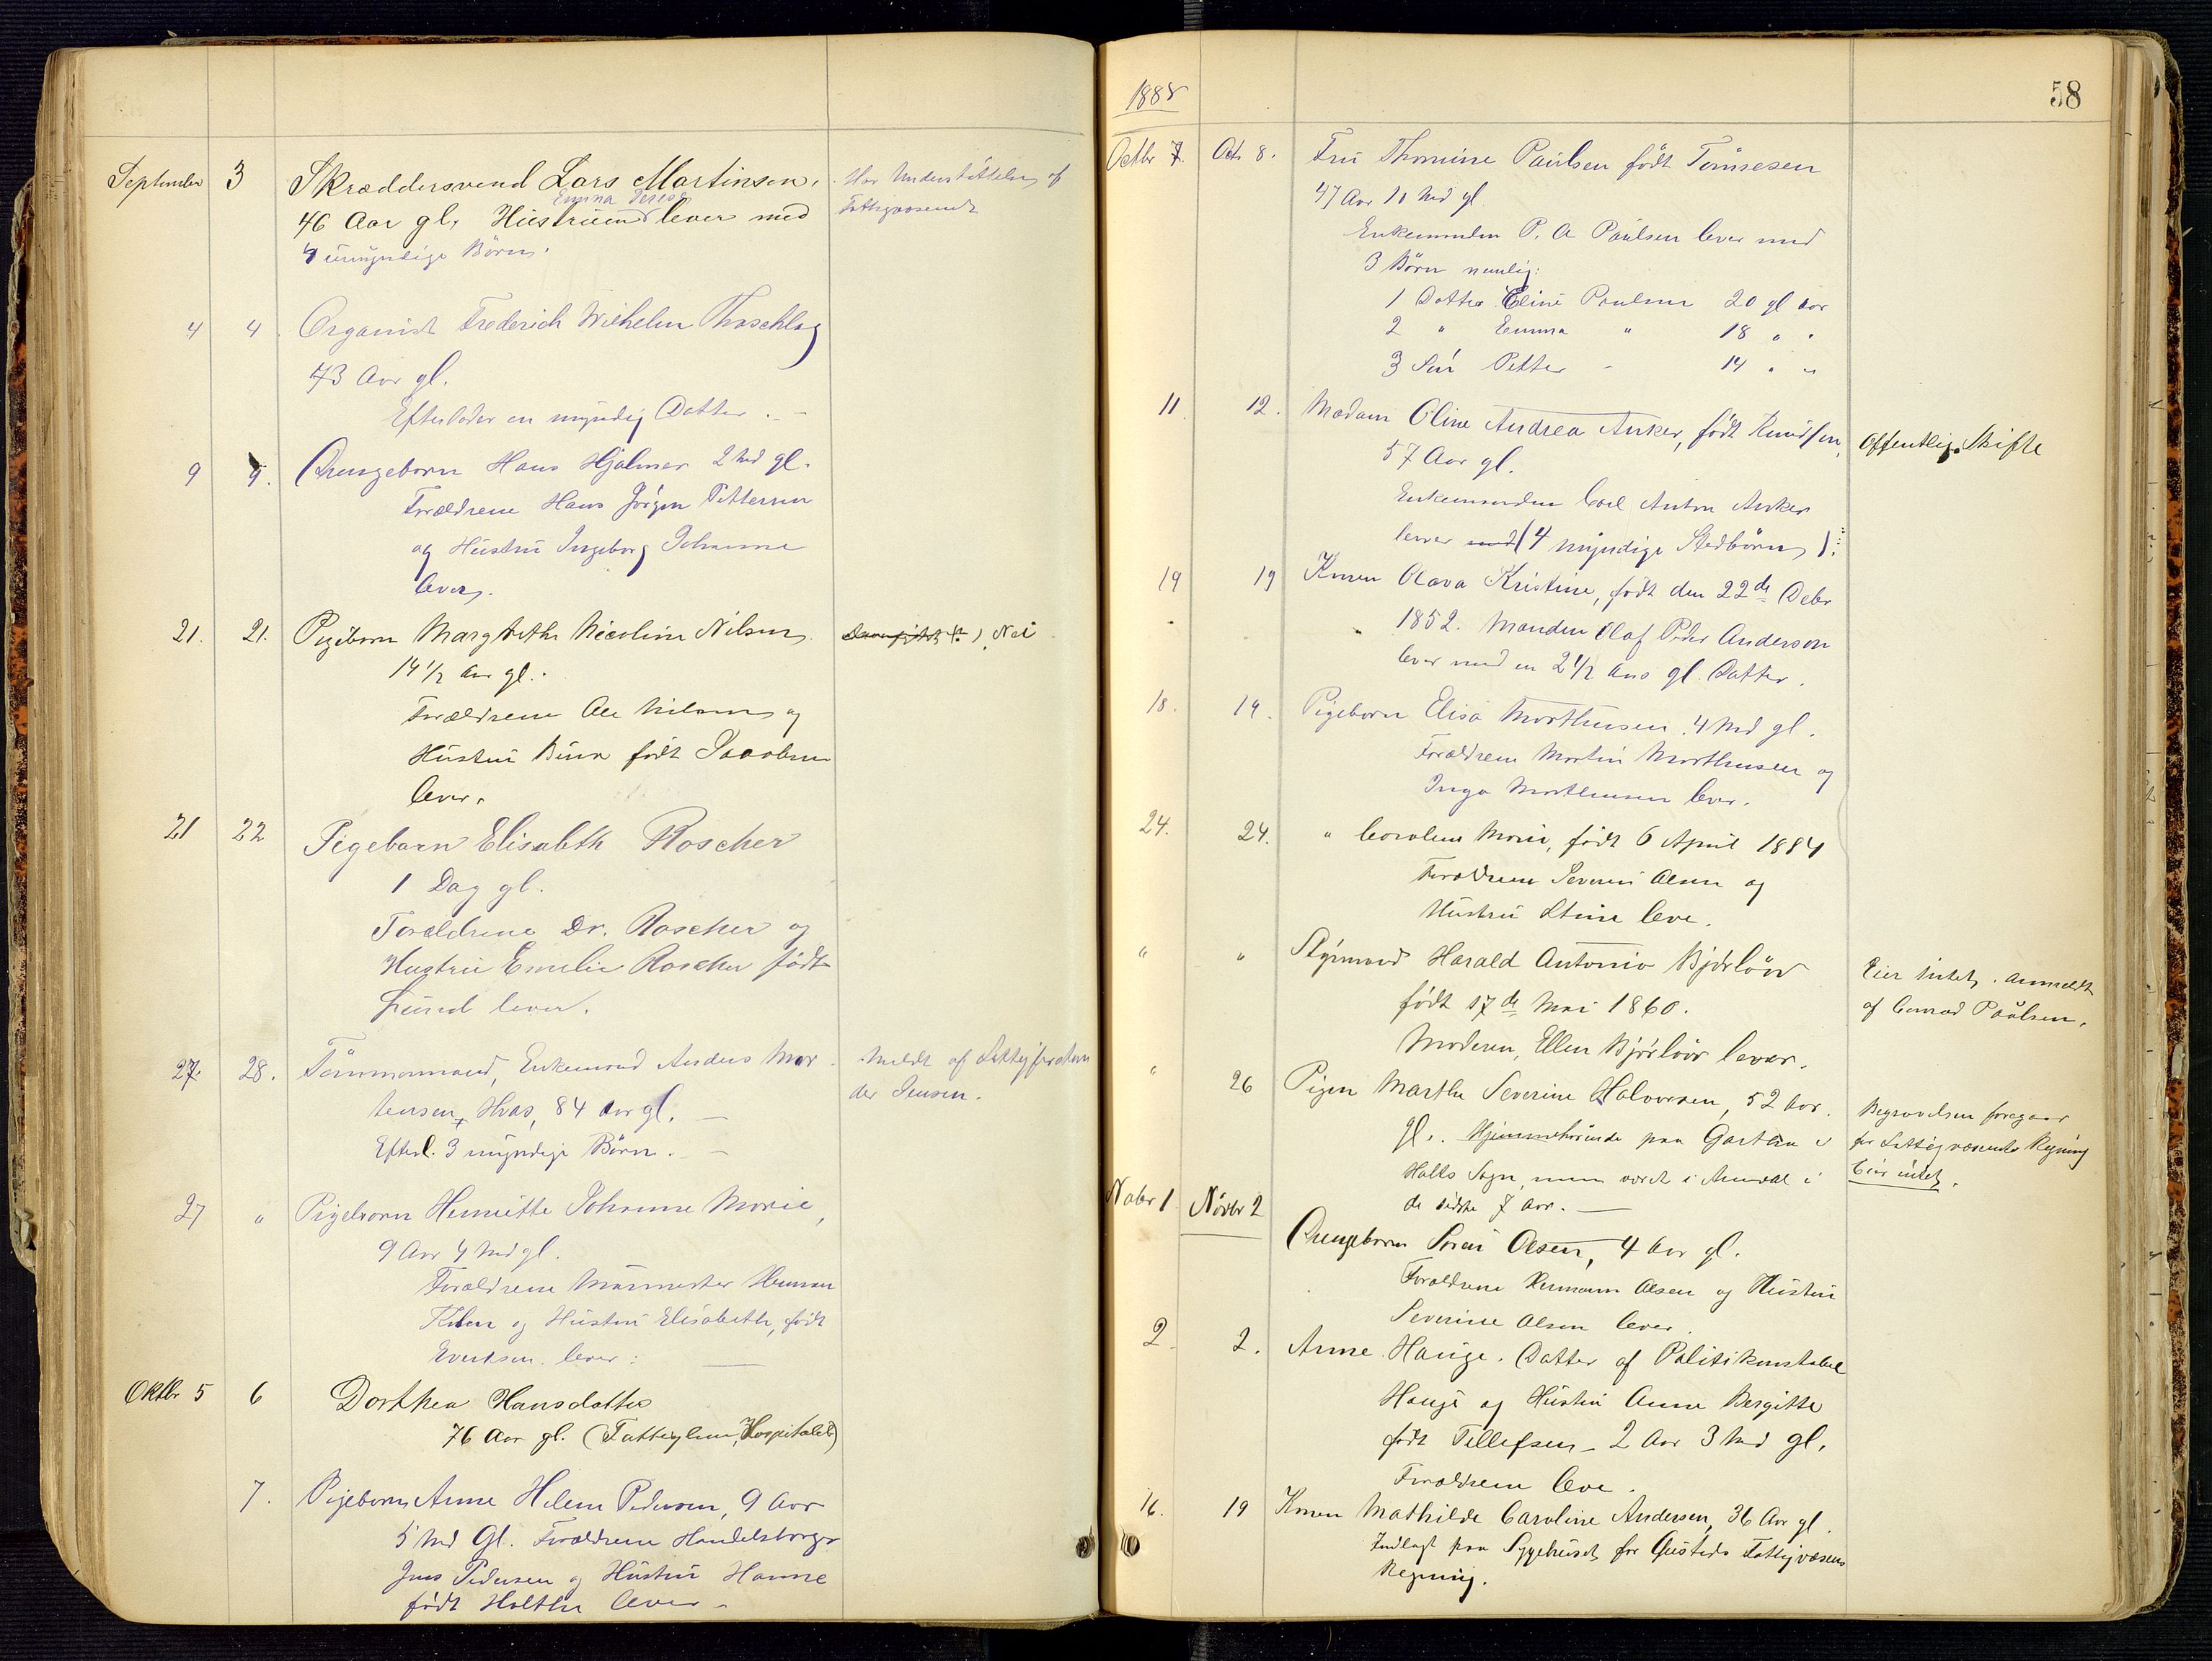 September 3 Skræddersvend Lars Martinsen. Har Understøttelse af
46 Aar gl. Hustruen Emina lever med Fattigvæsenet
4 umyndige Børn.
4 4 Organist Frederich Wilhelm Thraschlag
73 Aar gl.
Efterlader en myndig Datter. –
9 9. Drengebarn Hans Hjalmar 2 Md gl.
Forældrene Hans Jørgen Pettersen
og Hustru Ingeborg Johanne
lever.
21. 21. Pigebarn Margrethe Nicoline Nilsen Nei
14 1/2 Aar gl.
Forældrene Ole Nilsen og
Hustru født Jacobsen
lever.
21 22 Pigebarn Elisabeth Roscher
1 Dag gl.
Forældrene Dr. Roscher og
Hustru Emilie Roscher født
Lund lever.
27. 28. Tømmermand, Enkemand Anders Mor- Meldt af Fattigforstan
tensen Hvas, 84 Aar gl. – der Jensen.
Efterl. 3 myndige Børn. –
27 " Pigebarn Henriette Johanne Marie,
9 Aar 4 Md gl.
Forældrene Murmester Herman
og Hustru Elisabeth, født
Evertsen lever:
Oktbr 5 6 Dorthea Hansdatter
76 Aar gl. (Fattiglem, Hospitalet)
7. Pigebarn Anne Helene Pedersen, 9 Aar
5 Md Gl. Forældrene Handelsborger
Jens Pedersen og Hustru Hanne
født Holthe lever –
58
1888
Octbr 7. Octr 8. Fru Thomine Paulsen født Tønnesen
47 Aar 10 Md gl
Enkemanden P. A. Paulsen lever med
3 Børn nemlig:
1 Datter Eline Paulsen 20 gl Aar
2 " Emma " 18 " "
3 Søn Petter - 14 " "
11. 12. Madam Oline Andrea Anker, født Knudsen, Offentlig Skifte
57 Aar gl.
Enkemanden Carl Anton Anker
lever med (4 myndige Stedbørn).
19 19 Konen Olava Kristine, født den 22de Debr
1852. Manden Olaf Peder Anderson
lever med en 2 1/2 Aars gl. Datter.
18. 19. Pigebarn Elisa Morthensen 4 Md gl.
Forældrene Martin Morthensen og
Inga Morthensen lever.
24. 24. " Caroline Marie, født 6 April 1884
Forældrene Severin Olsen og
Hustru Stine leve.
" " Styrmand Harald Antonio Bjørløv Eier intet. Anmeldt
født 17de Mai 1860. af Conrad Paulsen.
Moderen, Ellen Bjørløv lever.
" 26 Pigen Marthe Severine Halvorsen, 52 Aar Begravelsen foregaar
gl. Hjemmehørende paa Garten i for Fattigvæsenets Regning
Holts Sogn, men været i Arendal i Eier intet.
de sidste 7 Aar. –
Nobr 1 Novbr 2
Drengebarn Søren Olsen, 4 Aar gl.
Forældrene Hermann Olsen og Hustru
Severine Olsen lever.
2 2. Anne Hauge. Datter af Politikonstabel
Hauge og Hustru Anne Bergitte
født Tellefsen – 2 Aar 3 Md gl.
Forældrene leve.
16. 19 Konen Mathilde Caroline Andersen, 36 Aar gl.
Indlagt paa Sygehuset for Øiesteds Fattigvæsens
Regning.